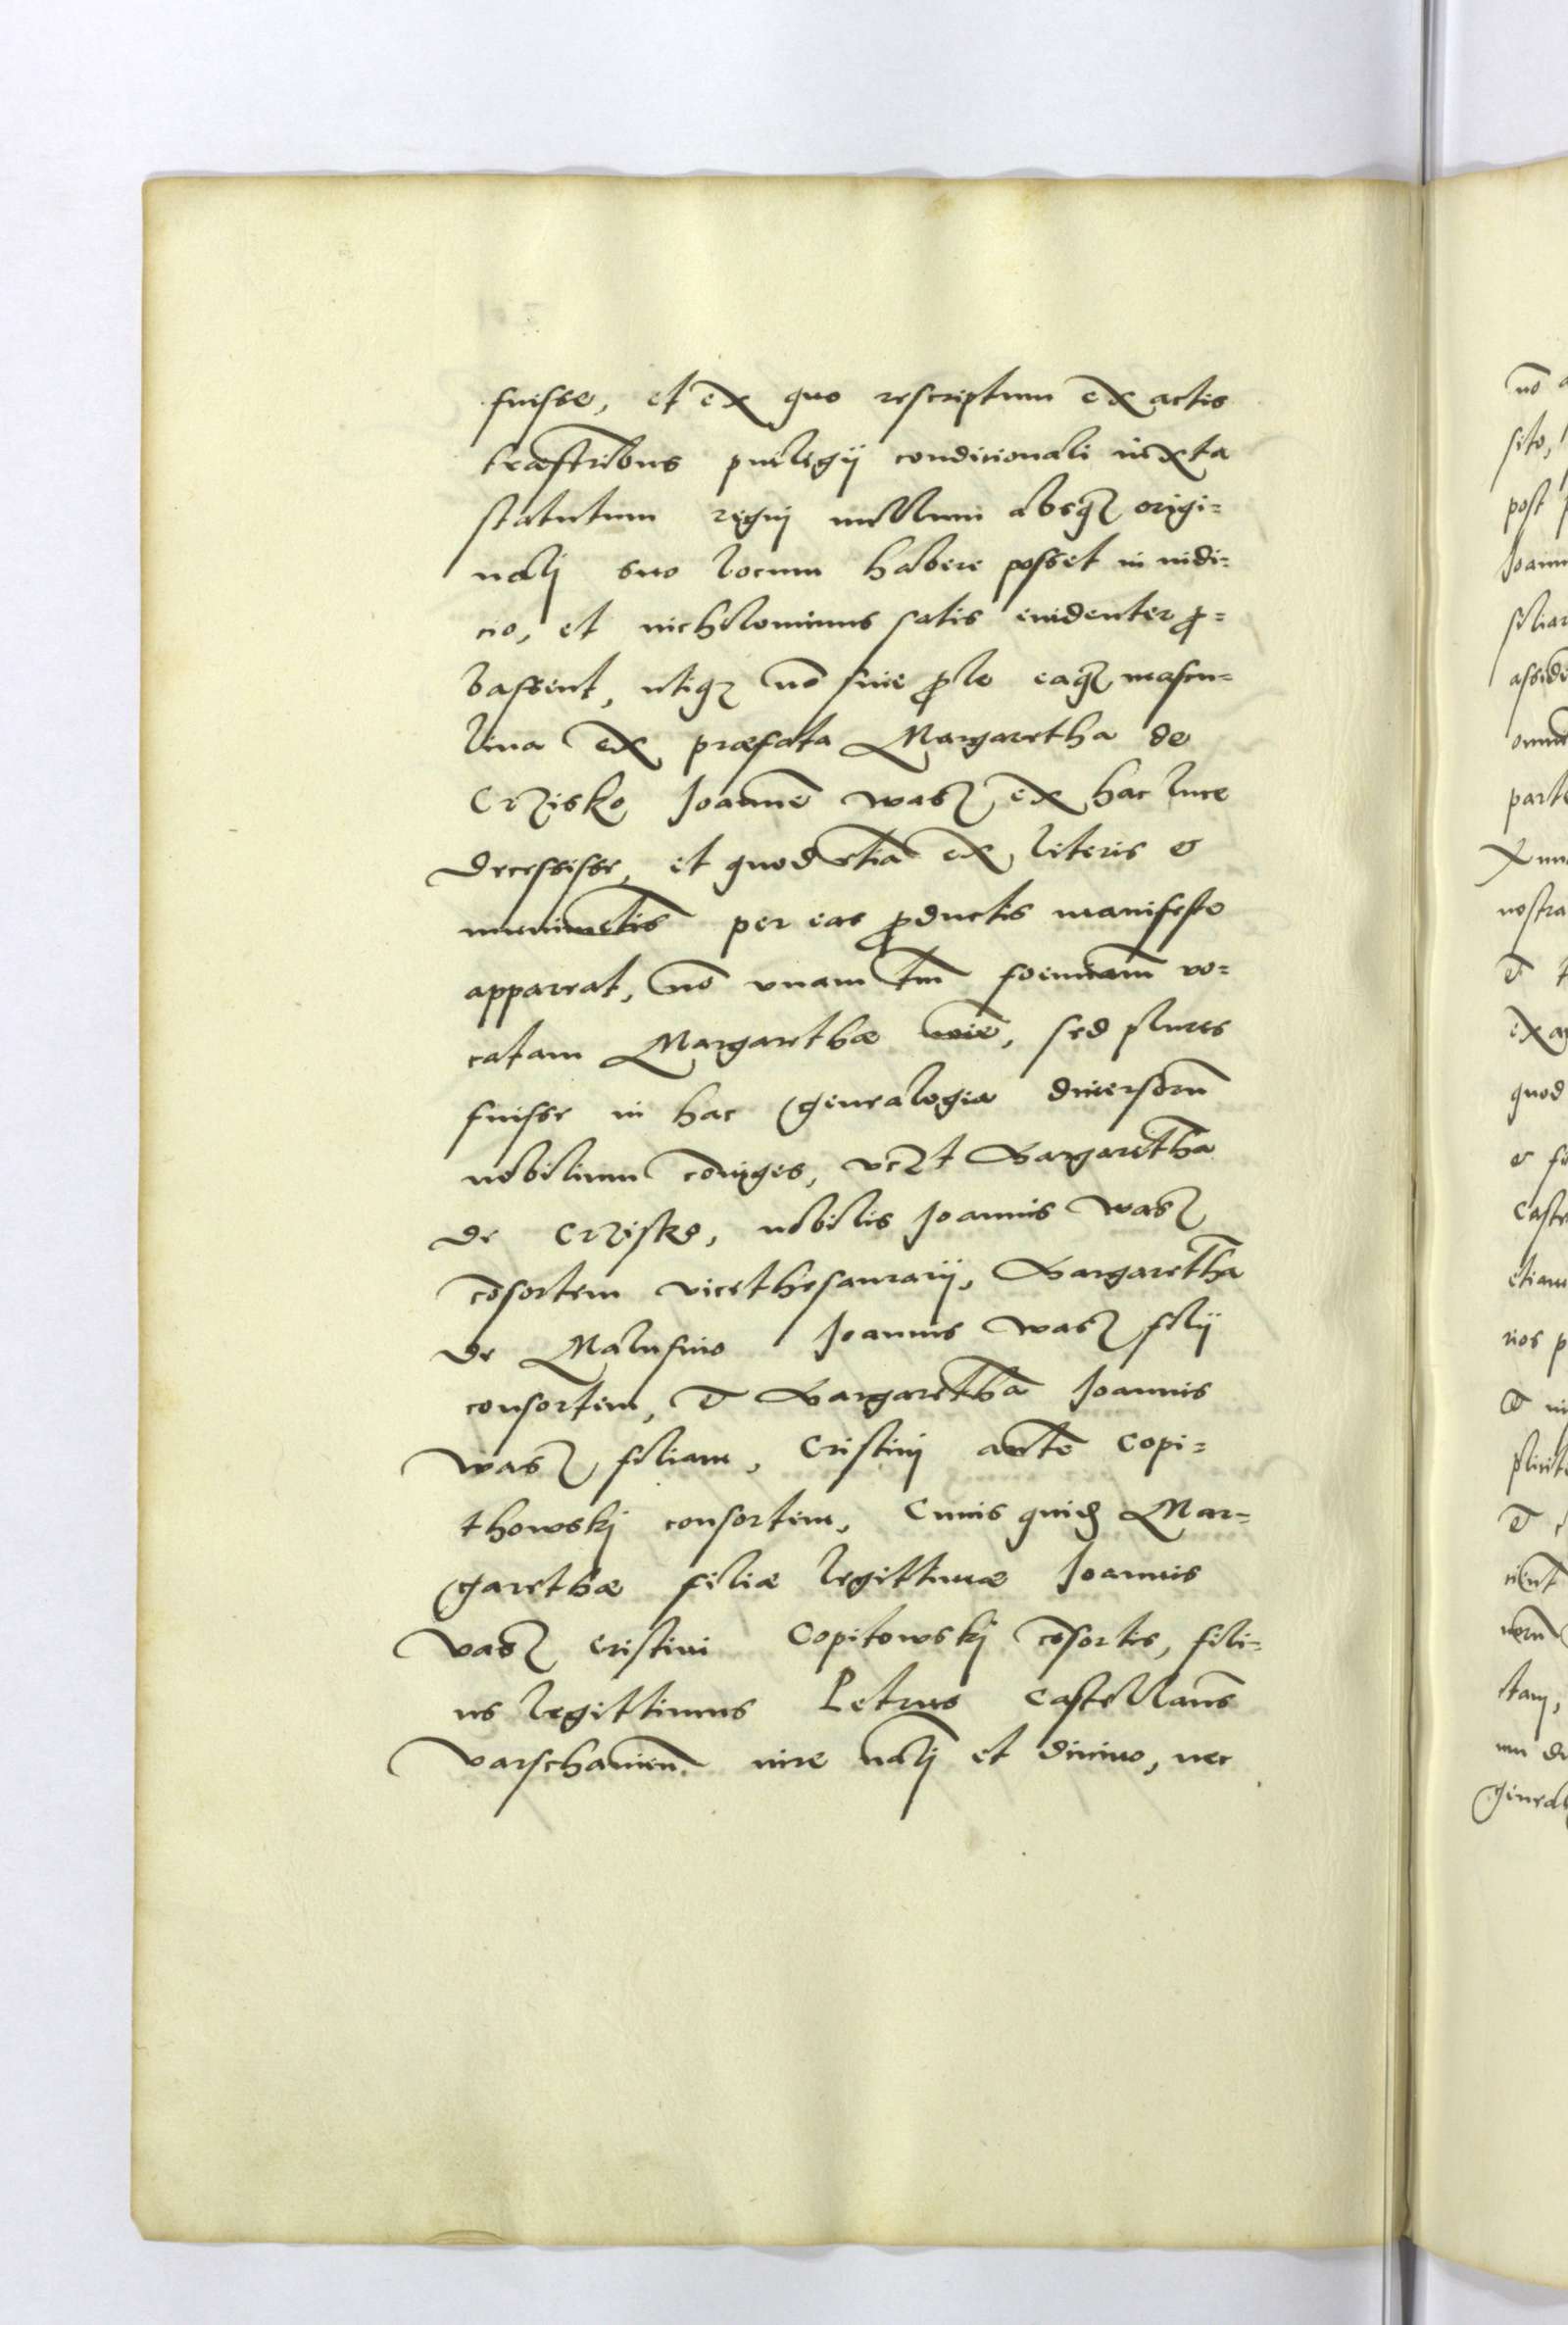 fuisse, et ex quo rescriptum ex actis
terrestribus priuilegij condicionali iuxta
statutum regnj nullum absq₃ origi=
nalj suo locum habere posset in iudi=
cio, et nichilominus satis euidenter ꝓ=
bassent, utiq₃ nō sine ꝓle eaq₃ mascu=
lina ex præfata Margaretha de
Crzisko Joannē wasz ex hac luce
decessisse, et quod etiā ex literis &
munimētis per eas ꝓductis manifeste
appareat, nō vnam tm̄ foeminam vo=
catam Margarethæ noīe, sed plures
fuisse in hac genealogia diuersorū
nobilium cōiuges, vczt Margarethā
de Crzisko, nobilis Joannis wasz
cōsortem vicethesaurarij, Margarethā
de Malusino Joannis wasz filij
consortem, & Margarethā Joannis
wasz filiam, Cristinj autē Copi=
thowskj consortem, Cuius quidē Mar=
garethæ filiæ legittimæ Joannis
vasz Cristini Copitowskj cōsortis, fili=
us legittimus Petrus Castellanus
varschauieñ. iure nālj et diuino, nec